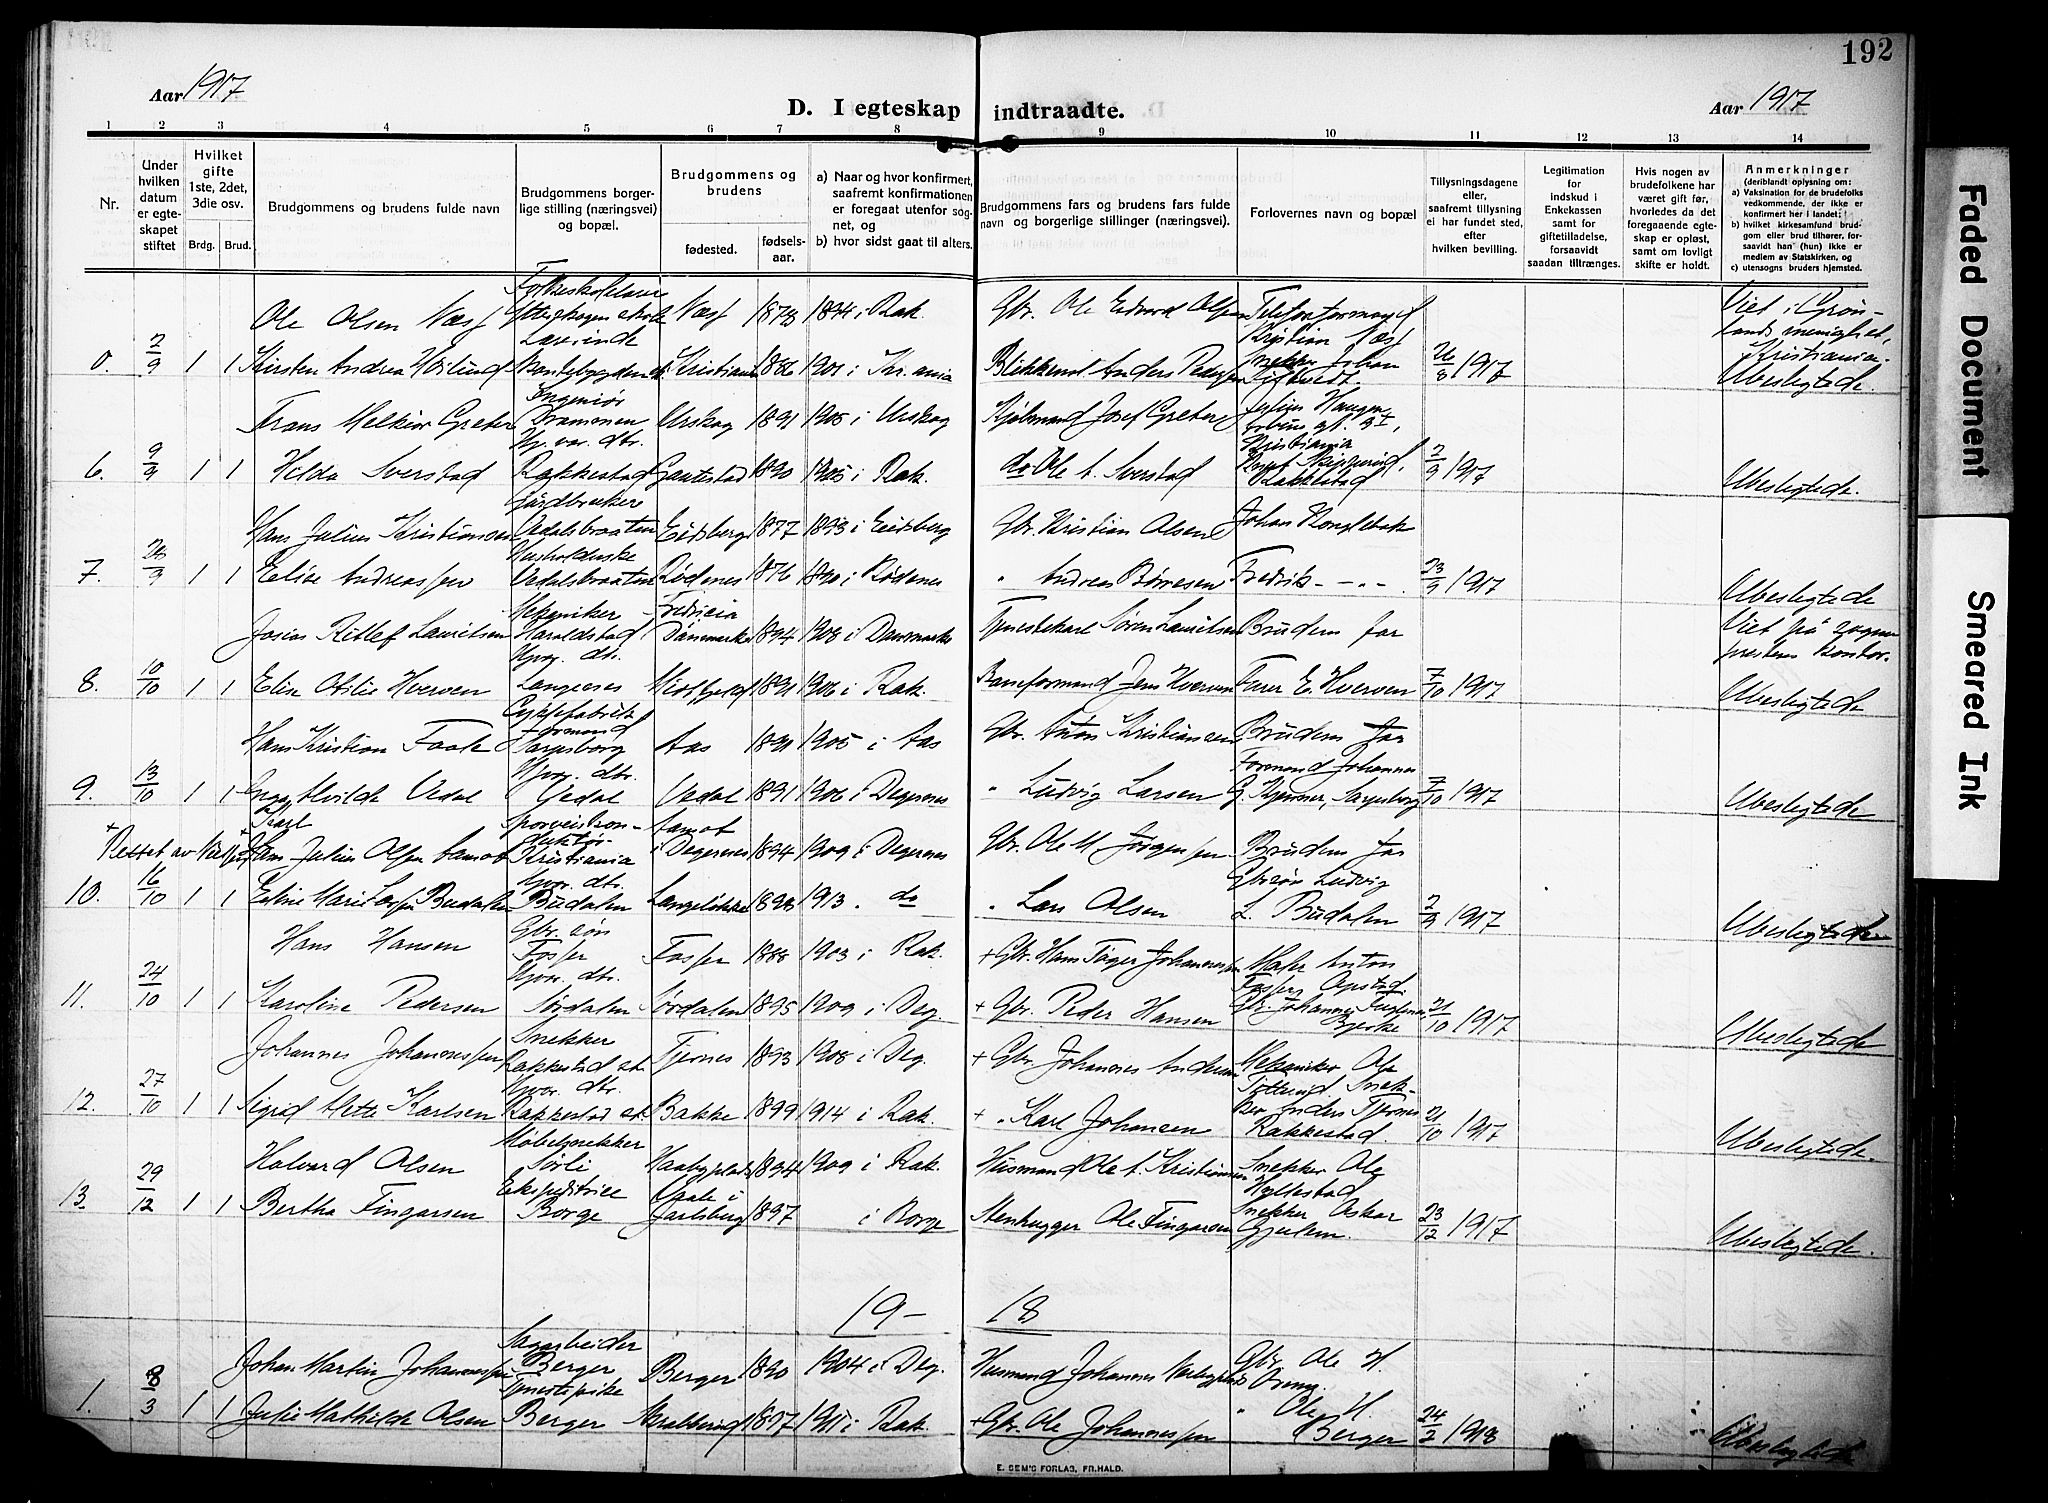 192
Aar 1917
D. I egteskap indtraadte.
Aar 1917
1 2 3 4 5 6 7 8 9 10 11 12 13 14
Nr.
Under hvilken datum er egteskapet stiftet
Hvilket gifte 1ste, 2det, 3die osv.
Brdg. Brud.
Brudgommens og brudens fulde navn
Brudgommens borgerlige stilling (næringsvei) og bopæl.
Brudgommens og brudens
fødested. fødselsaar.
a) Naar og hvor konfirmert, saafremt konfirmationen er foregaat utenfor sognet, og
b) hvor sidst gaat til alters.
Brudgommens fars og brudens fars fulde navn og borgerlige stillinger (næringsvei).
Forlovernes navn og bopæl
Tillysningsdagene eller, saafremt tillysning ei har fundet sted, efter hvilken bevilling.
Legitimation for indskud i Enkekassen samt for giftetilladelse, forsaavidt saadan tiltrænges.
Hvis nogen av brudefolkene har været gift før, hvorledes da det foregaaende egteskap er opløst, samt om lovligt skifte er holdt.
Anmerkninger
(deriblandt oplysning om:
a) Vaksination for de brudefolks vedkommende, der ikke er konfirmert her i landet;
b) hvilket kirkesamfund brudgom eller brud tilhører, forsaavidt han (hun) ikke er medlem av Statskirken, og
c) utensogns bruders hjemsted.
Ole Olsen Næss Næss 1894 i Rak. Gbr. Ole Edvard Olsen Kristian Næss Viet i Grønlands menighet, Kristiania.
2/9 1 1 Kirsten Andrea Lærerinde 1886 1901 i Kr.ania Anders Pedersen Snekker Johan 26/8 1917 Ubeslegtede.
Frans Melkior Greter Ingeniør Drammen Urskog 1891 1905 i Urskog Josef Greter Julius Haugen Kristiania
6. 9/9 1 1 Hilda Sverstad Hp. var. dtr. Rakkestad 1890 1905 i Rak. do Ole A. Sverstad Rakkestad 2/9 1917 Ubeslegtede.
Hans Julius Kristiansen Gårdbruker Vedalsbraaten Eidsberg 1877 1893 i Eidsberg Gbr. Kristian Olsen Johan Konglebak
7. 1 1 Eelise Andreassen Vedalsbraaten Rødenes 1876 1890 i Rødenes " Andreas Børresen Fredrik -"- 23/9 1917 Ubeslegtede
Josias Ritlef Lauritsen Mekaniker Haraldstad Fredricia Danmark 1894 1908 i Danmark Tjenestekarl Søren Lauritsen Brudens far Viet på sogneprestens kontor.
8. 10/10 1 1 Elise Otilie Hverven Hpvg. dtr. Langenes 1891 1906 i Rak. Baneformand Jens Hverven E. Hverven 7/10 1917 Ubeslegtede
Hans Kristian Faale Formand Sarpsborg Aas 1891 1905 i Aas Gbr. Anton Kristiansen Brudens far
9. 13/10 1 1 Inga Alvilde Vedal Hjvg. dtr. Vedal Vedal 1891 1906 i Degernes " Ludvig Larsen Formand Johannes G. Kjenner, Sarpsborg 7/10 1917 Ubeslegtede
+ Rettet av + Karl
Hans Julius Olsen Aamot Sporveiskonduktør Kristiania Aamot i Degernes 1894 1909 i Degernes Gbr. Ole M Jørgensen Brudens far
10. 16/10 1 1 Eline Marie Larsen Budalen Hjvr. dtr. Budalen 1893 1913 " do " Lars Olsen Gbrsøn Ludvig L. Budalen 2/9 1917 Ubeslegtede
Hans Hansen Gbr. søn Fosser Fosser 1888 1903 i Rak. + Gbr. Hans Tager Johannessen Anton
11. 24/10 1 1 Karoline Pedersen Hjvr. dtr. Sørdalen Sørdalen 1895 1909 i Deg. + Gbr. Peder Hansen Gbr. Johannes 21/10 1917 Ubeslegtede
Johannes Johannessen Snekker Rakkestad st. Tjernes 1893 1908 i Deg. + Gbr. Johannes Andersen Mekaniker Ole
12. 27/10 1 1 Sigrid Alette Karlsen Hjvr. dtr. Rakkestad st. Bakke 1899 1914 i Rak. + " Karl Johansen Snekker Anders Tjernes Rakkestad. 21/10 1917 Ubeslegtede.
Halvard Olsen Møbelsnekker Sørli 1894 1909 i Rak. Husmand Ole A. Kristiansen Snekker Ole Hyllestad
13. 29/12 1 1 Bertha Fingarsen Ekspeditrice Borge Vaale i Jarlsberg 1897 i Borge Stenhugger Ole Fingarsen Snekker Oskar Gjulem. 23/12 1917 Ubeslegtede.
19- 18
Johan Martin Johannessen Sagarbeider Berger Berger 1890 1904 i Deg. Husmand Johannes Gbr. Ole H.
1. 8/3 1 1 Julie Mathilde Olsen Tjenestepike Berger 1897 1911 i Rak. + Gbr. Ole Johannessen " Ole H. Berger 24/2 1918 Ubeslegtede
E. SEM'S FORLAG, FR.HALD.
Faded Document
Smeared Ink